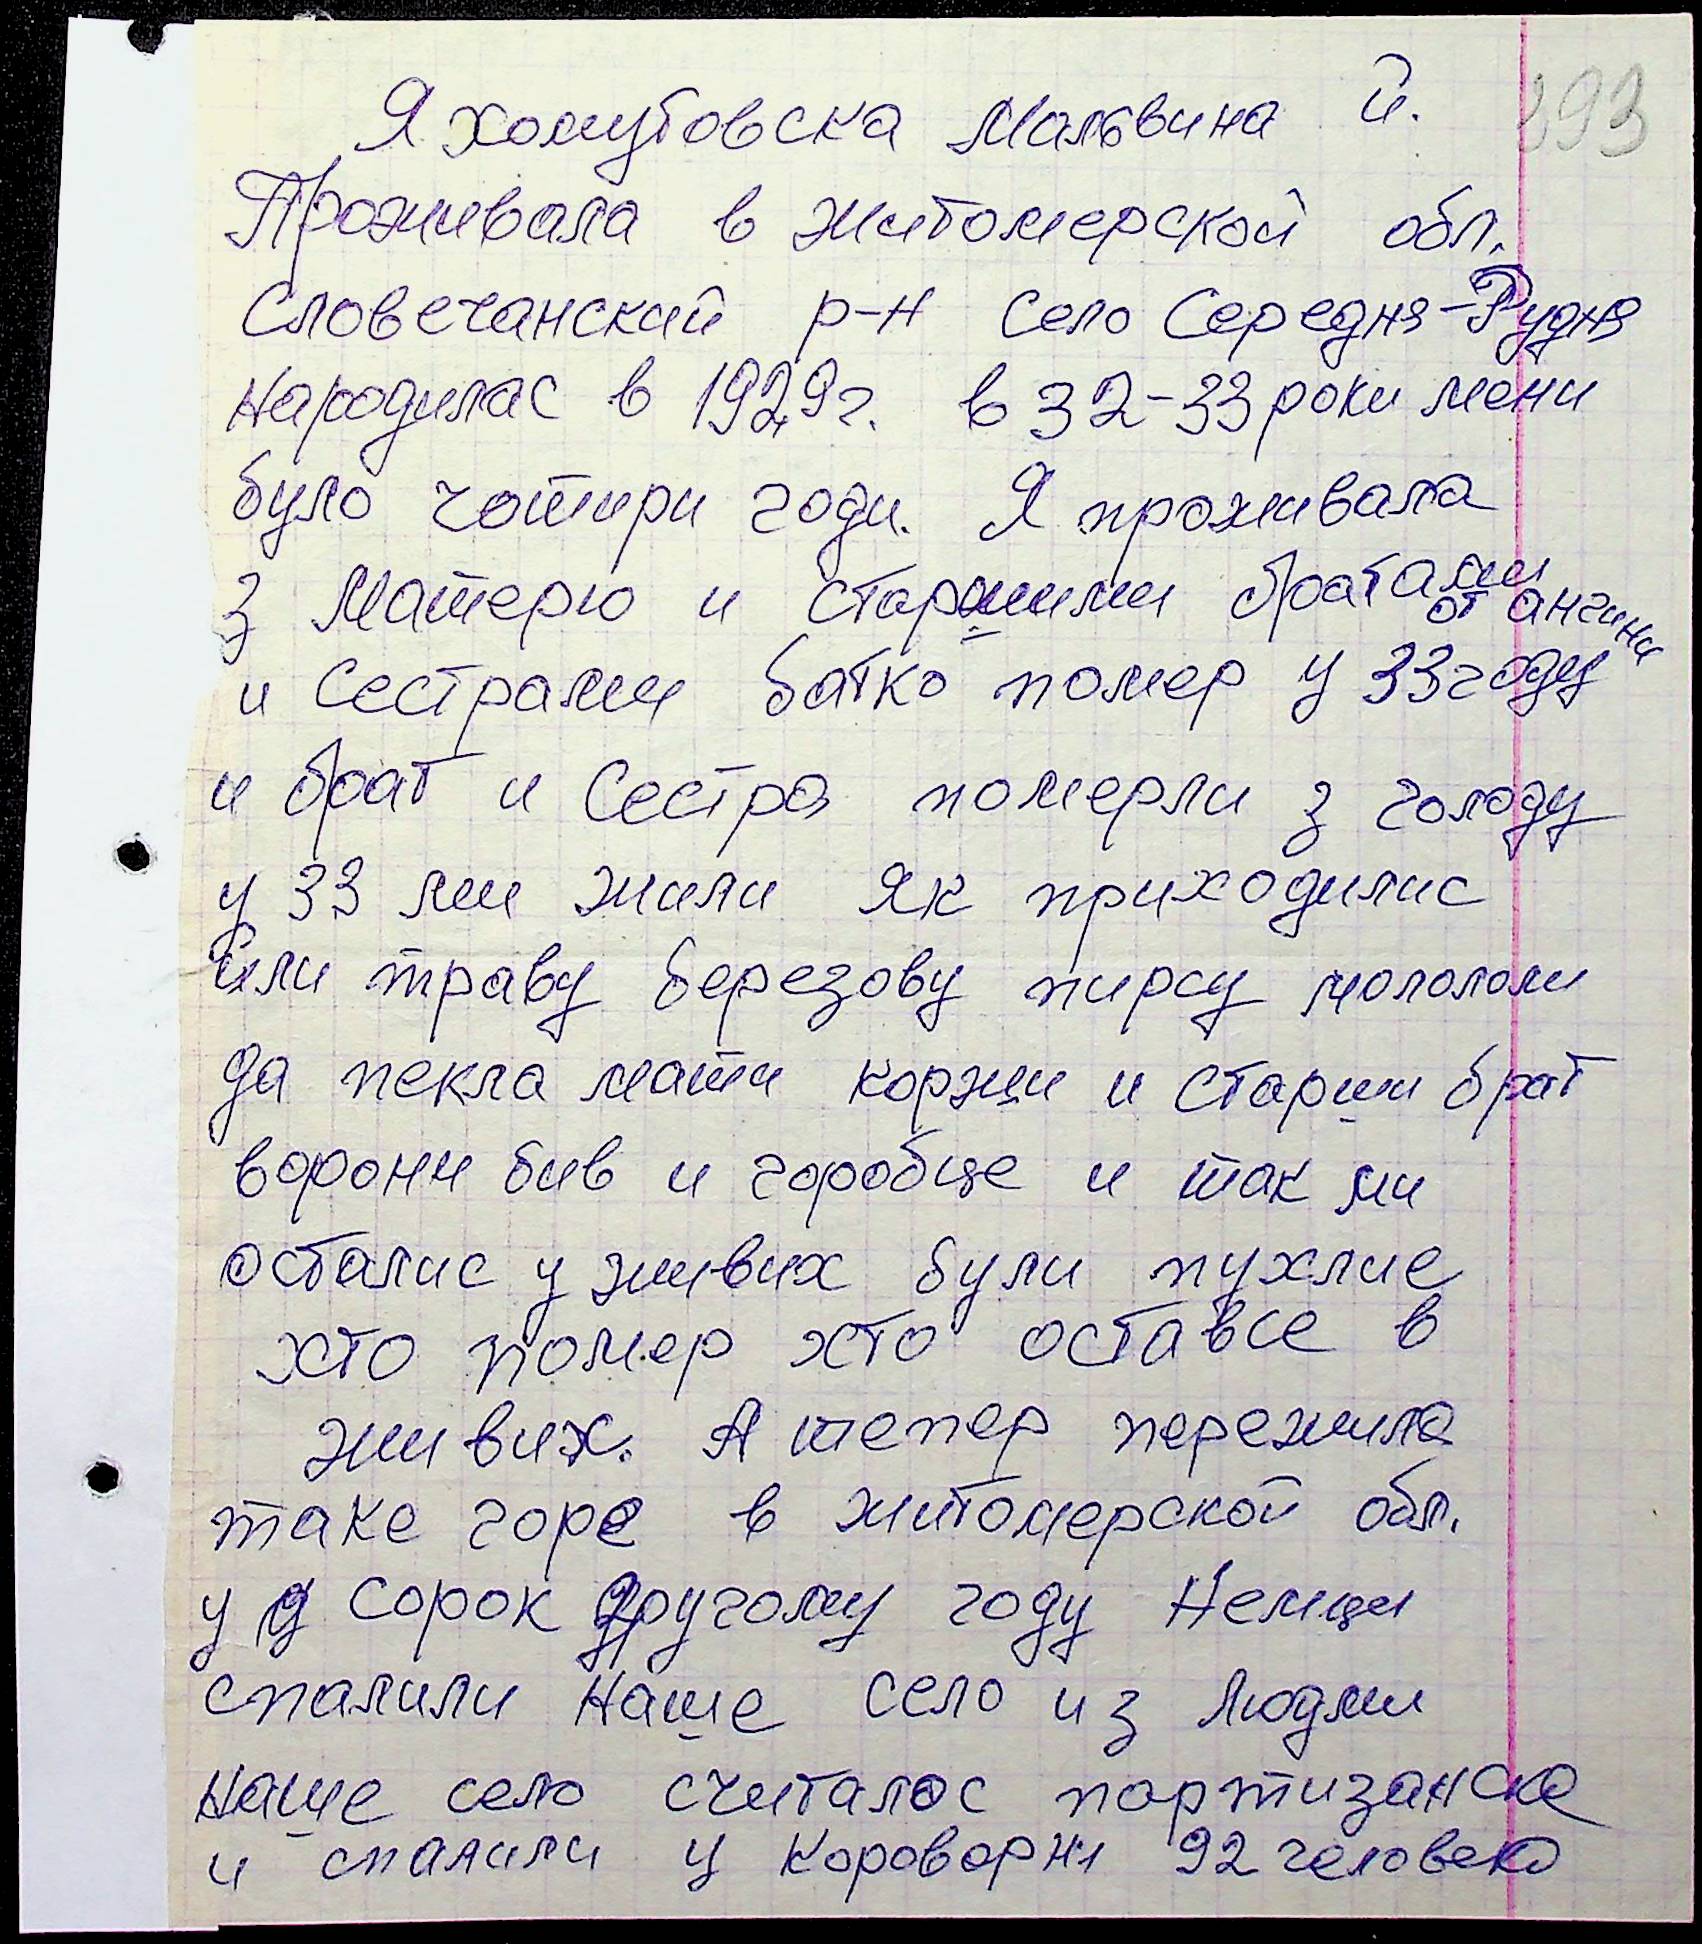 393
Я хомутовска Мальвина Й.
Проживала в житомерской обл.
Словечанский р-н село Середня-Рудня
народилас в 1929г. в 32-33 роки мени
було чотири годи. Я проживала
з Матерю и старшими братами
от ангини
и Сестрами батко помер у 33 году
и брат и Сестра померли з голоду
у 33 ми жили як приходилис
іли траву березову пирсу мололоми
да пекла мати коржи и старши брат
ворони бив и горобце и так ми
осталис у живих були пухлие
хто помер хто оставсе в
живих. А тепер пережила
таке горе в житомерской обл.
у сорок другому году Немци
спалили наше село из людми
наше село считалос партизанске
и спалили у короворни 92 человека